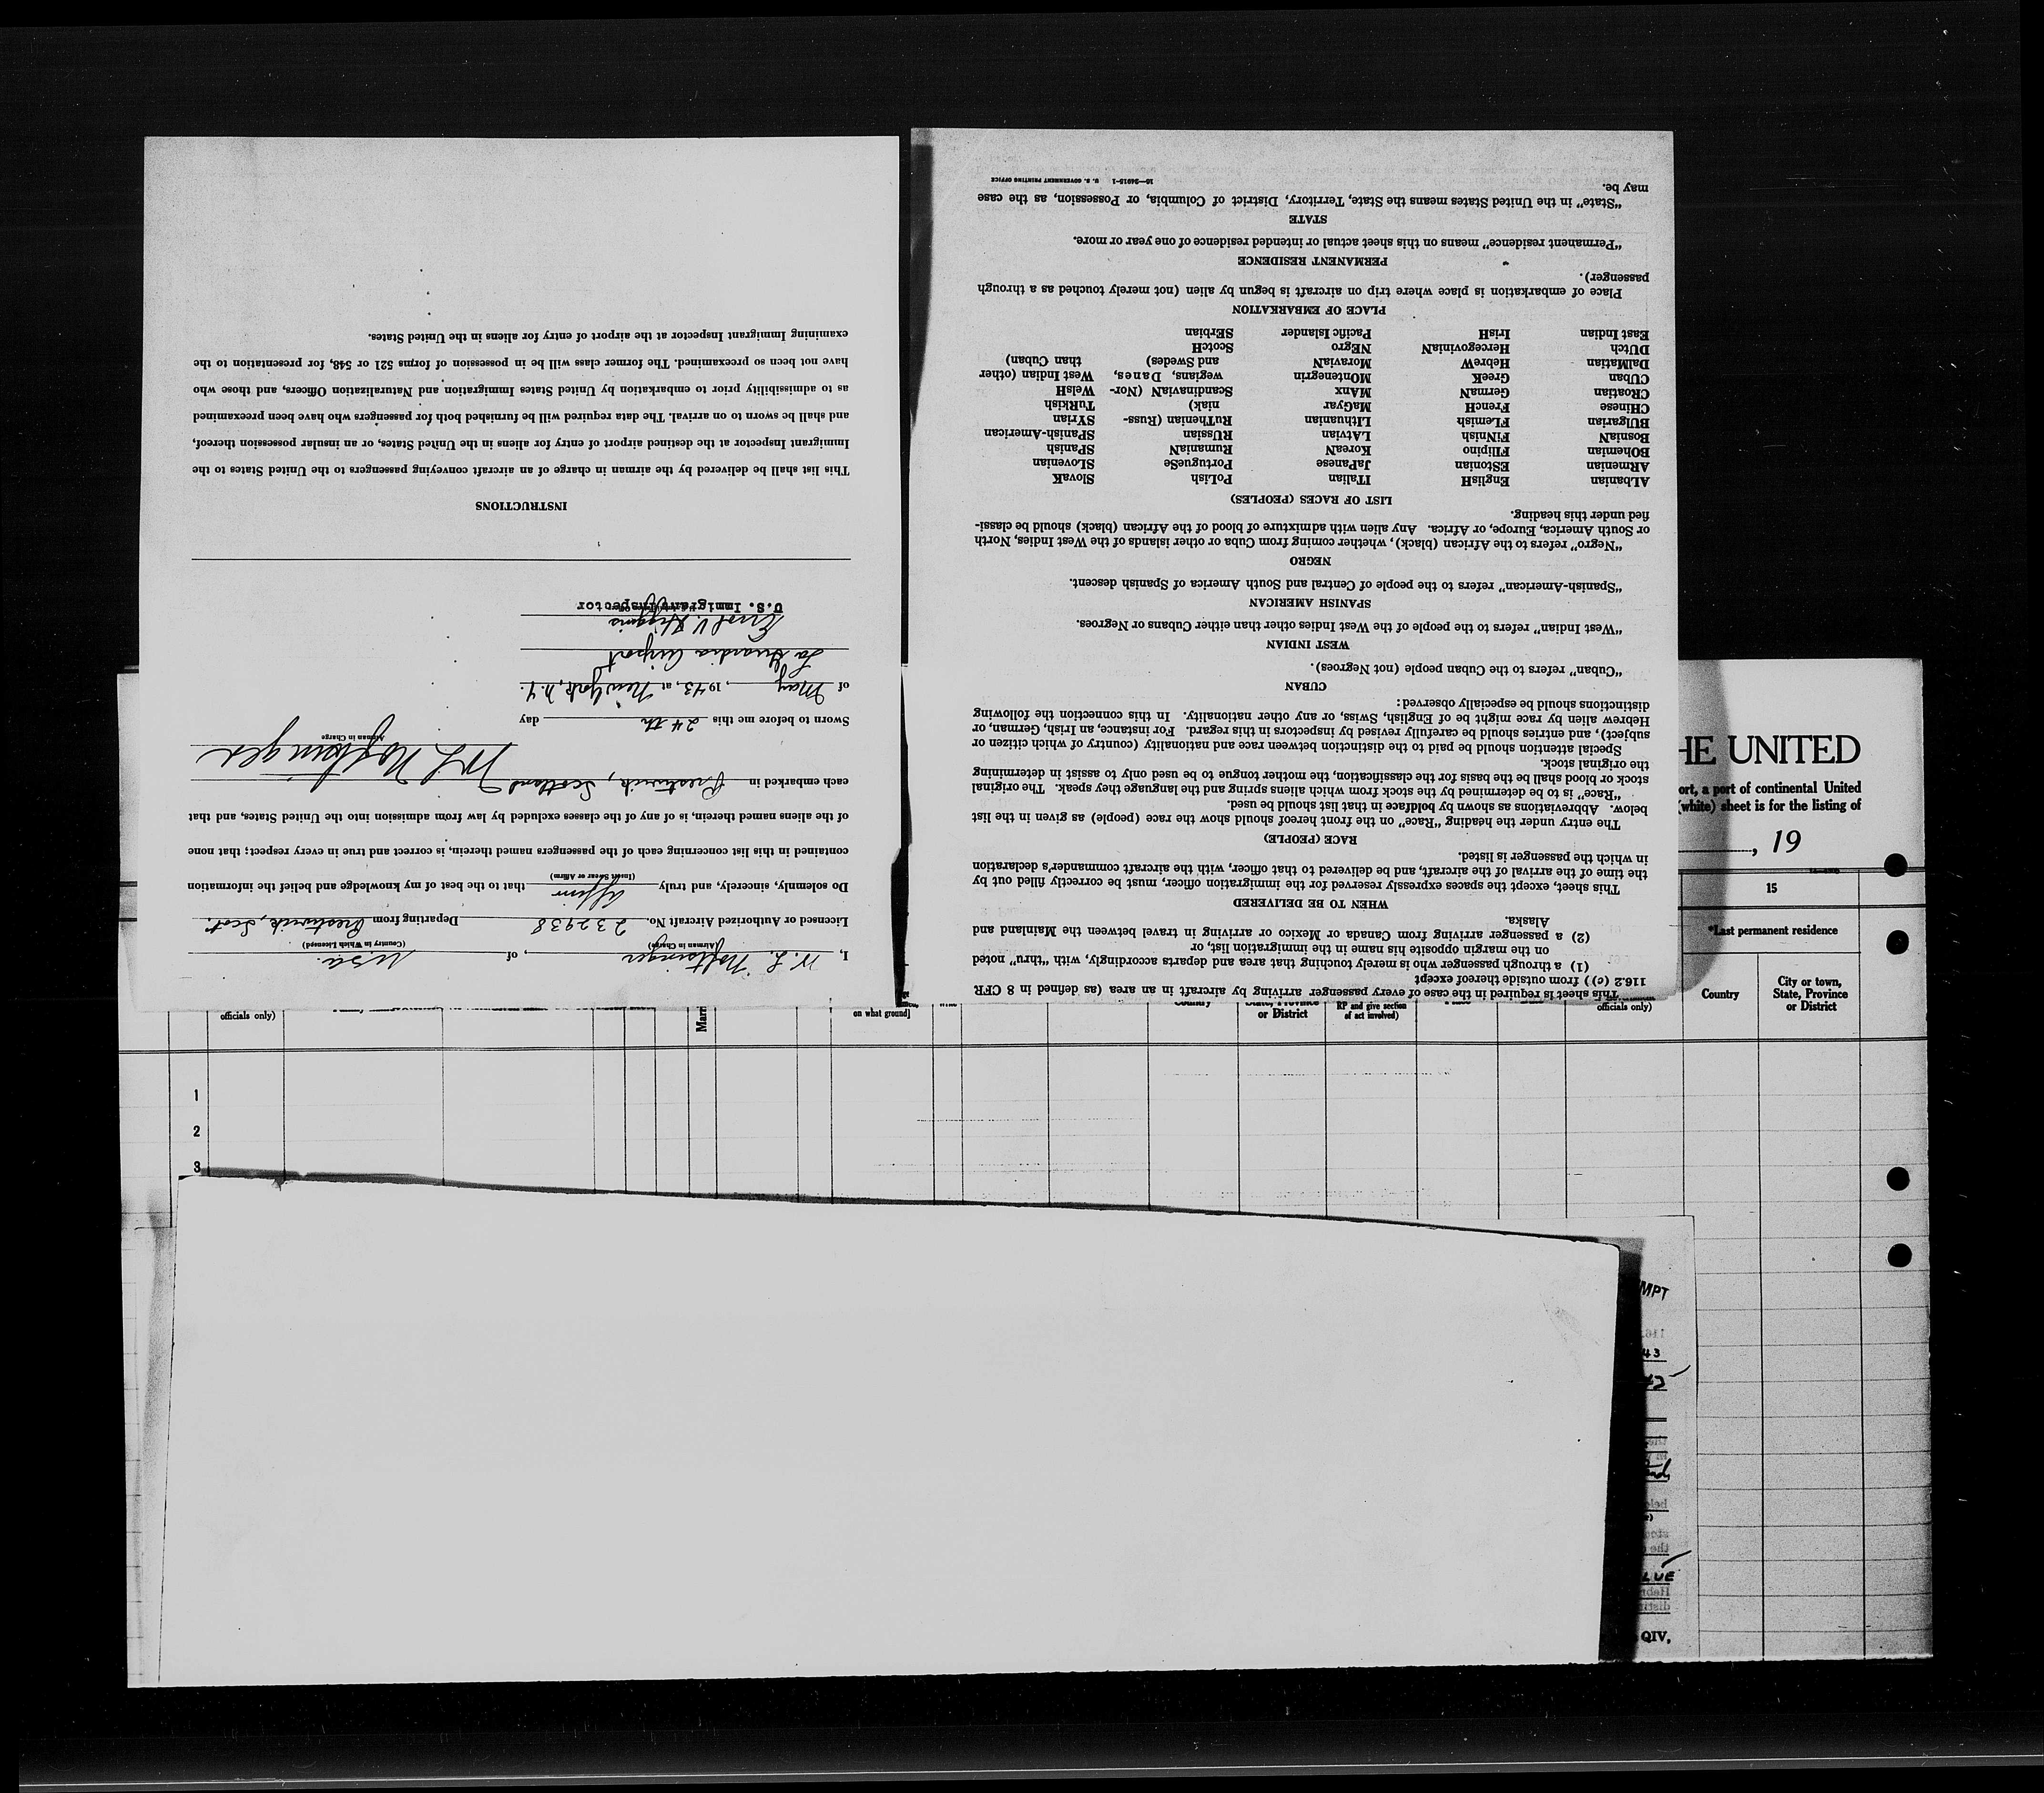 I, W. L. Noftsinger, of U.S.A.
(Airman in Charge) (Country in Which Licensed)
Licensed or Authorized Aircraft No. 232938 Departing from Prestwick, Scot.
Do solemnly, sincerely, and truly affirm that to the best of my knowledge and belief the information
(Insert Swear or Affirm)
contained in this list concerning each of the passengers named therein, is correct and true in every respect; that none
of the aliens named therein, is of any of the classes excluded by law from admission into the United States, and that
each embarked in Prestwick, Scotland
W L Noftsinger
Airman in Charge
Sworn to before me this 24th day
of May, 1943, at New York, N.Y.
La Guardia Airport
Errol V. Higgins
U.S. Immigrant Inspector
INSTRUCTIONS
This list shall be delivered by the airman in charge of an aircraft conveying passengers to the United States to the
Immigrant Inspector at the destined airport of entry for aliens in the United States, or an insular possession thereof,
and shall be sworn to on arrival. The data required will be furnished both for passengers who have been preexamined
as to admissibility prior to embarkation by United States Immigration and Naturalization Officers, and those who
have not been so preexamined. The former class will be in possession of forms 521 or 548, for presentation to the
examining Immigrant Inspector at the airport of entry for aliens in the United States.
This sheet is required in the case of every passenger arriving by aircraft in an area (as defined in 8 CFR
116.2 (c)) from outside thereof except
(1) a through passenger who is merely touching that area and departs accordingly, with "thru" noted
on the margin opposite his name in the immigration list, or
(2) a passenger arriving from Canada or Mexico or arriving in travel between the Mainland and
Alaska.
WHEN TO BE DELIVERED
This sheet, except the spaces expressly reserved for the immigration officer, must be correctly filled out by
the time of the arrival of the aircraft, and be delivered to that officer, with the aircraft commander's declaration
in which the passenger is listed.
RACE (PEOPLE)
The entry under the heading "Race" on the front hereof should show the race (people) as given in the list
below. Abbreviations as shown by boldface in that list should be used.
"Race" is to be determined by the stock from which aliens spring and the language they speak. The original
stock or blood shall be the basis for the classification, the mother tongue to be used only to assist in determining
the original stock.
Special attention should be paid to the distinction between race and nationality (country of which citizen or
subject), and entries should be carefully revised by inspectors in this regard. For instance, an Irish, German, or
Hebrew alien by race might be of English, Swiss, or any other nationality. In this connection the following
distinctions should be especially observed:
CUBAN
"Cuban" refers to the Cuban people (not Negroes).
WEST INDIAN
"West Indian" refers to the people of the West Indies other than either Cubans or Negroes.
SPANISH AMERICAN
"Spanish-American" refers to the people of Central and South America of Spanish descent.
NEGRO
"Negro" refers to the African (black), whether coming from Cuba or other islands of the West Indies, North
or South America, Europe, or Africa. Any alien with admixture of blood of the African (black) should be classi-
fied under this heading.
LIST OF RACES (PEOPLES)
ALbanian EnglisH ITalian PoLish SlovaK
ARmenian EStonian JaPanese PortugueSe SLovenian
BOhemian FIlipino KoreaN RumaniaN SPanish
BosniaN FiNish LAtvian RUssian SPanish-American
BUlgarian FLemish LIthuanian RuThenian (Russ- SYrian
CHinese FrencH MaGyar niak) TuRkish
CRoatian GermaN MAnx ScandinaviaN (Nor- WelsH
CUban GreeK MOntenegrin wegians, Danes, West Indian (other
DalMatian HebreW MoraviaN and Swedes) than Cuban)
DUtch HercegoviniaN NEgro ScotcH
East Indian IrisH Pacific Islander SErbian
PLACE OF EMBARKATION
Place of embarkation is place where trip on aircraft is begun by alien (not merely touched as a through
passenger).
PERMANENT RESIDENCE
"Permanent residence" means on this sheet actual or intended residence of one year or more.
STATE
"State" in the United States means the State, Territory, District of Columbia, or Possession, as the case
may be.
16—24915-1 U. S. GOVERNMENT PRINTING OFFICE
HE UNITED
ort, a port of continental United
(white) sheet is for the listing of
, 19
15
*Last permanent residence
Country
City or town,
State, Province
or District
officials only)
Marri
on what ground]
or District
RP and give section
of act involved)
officials only)
1
2
3
MPT
43
LUE
QIV,